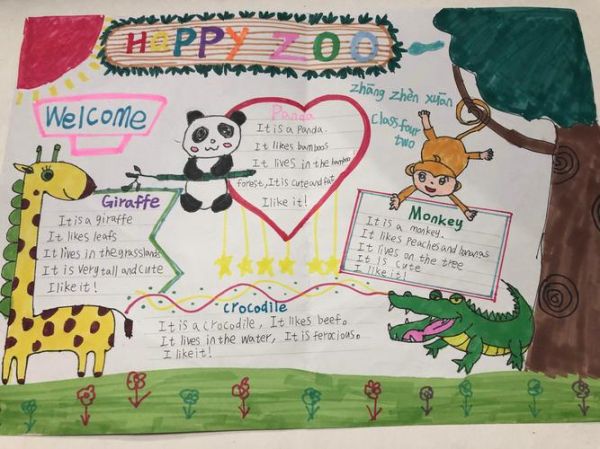 HAPPY ZOO
Welcome
zhāng zhèn xuān
Class four
two
Panda
It is a Panda.
It likes bamboos
It lives in the bamboo
forest, It is cute and fat
I like it!
Giraffe
It is a giraffe
It likes leafs
It lives in the grasslands
It is Very tall and cute
I like it!
Monkey
It is a monkey.
It likes Peaches and bananas
It lives on the tree
It is cute
I like it!
crocodile
It is a crocodile, It likes beef。
It lives in the water, It is ferocious。
I like it!